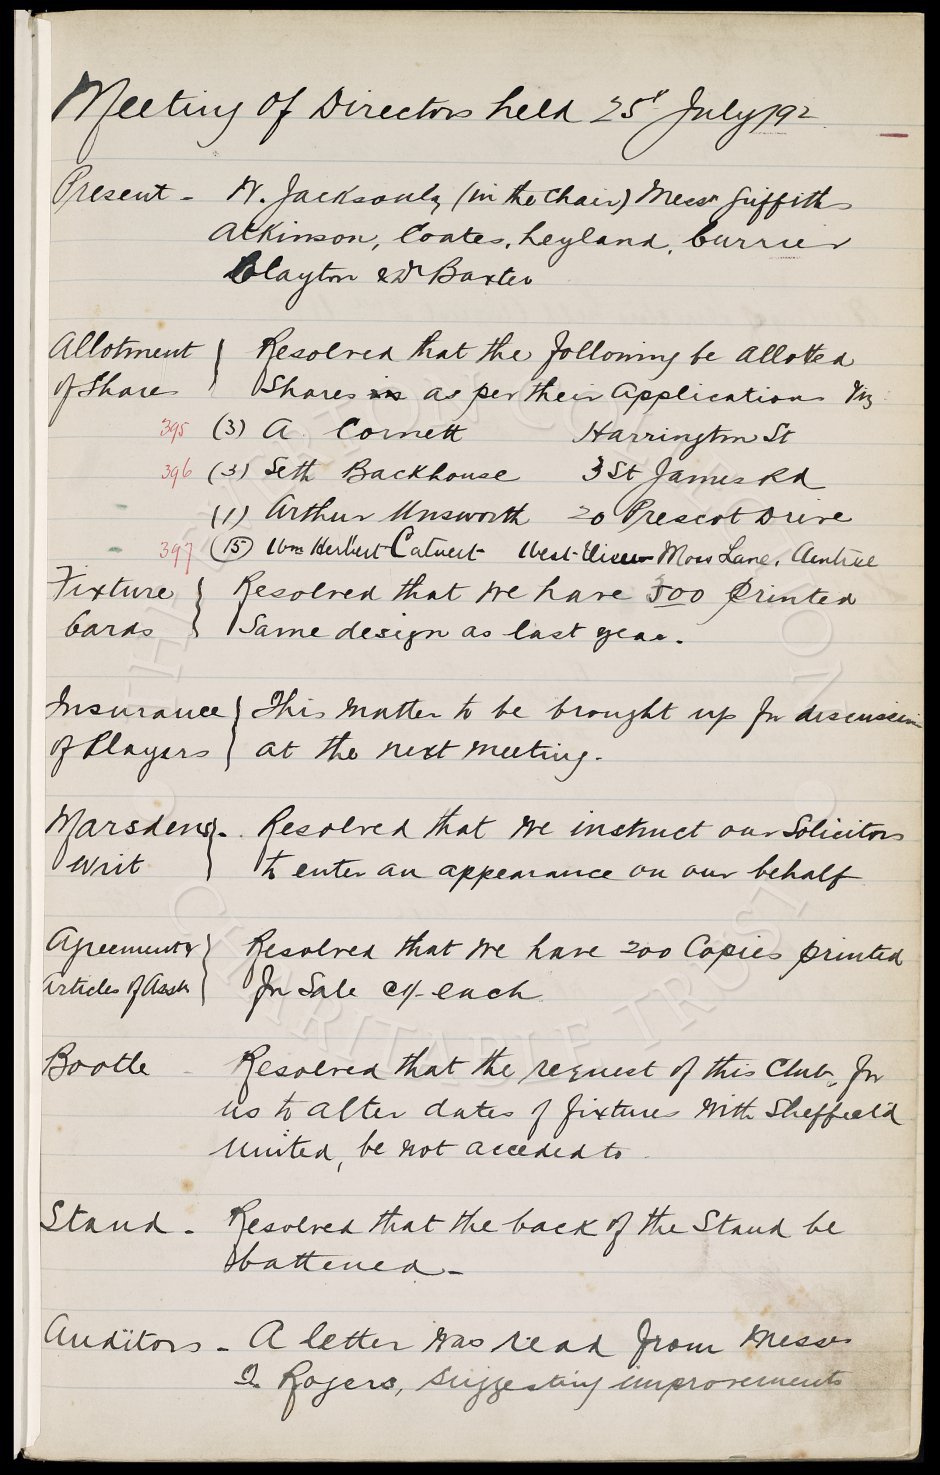 Meeting of Directors held 25th July /92
Present - W. Jackson (in the Chair) Messrs Griffiths
Atkinson, Coates, Leyland, Currier
Clayton & Dr Baxter
Allotment of Shares } Resolved that the following be allotted
Shares as per their Applications Viz
395 (3) A. Cornett Harrington St
396 (3) Seth Backhouse 3 St James Rd
(1) Arthur Unsworth 20 Prescot Drive
397 (15) Wm Herbert Calvert West View Moss Lane, Aintree
Fixture Cards } Resolved that we have 500 printed
Same design as last year.
Insurance of Players } This matter to be brought up for discussion
at the next meeting.
Marsdens Writ } Resolved that we instruct our Solicitors
to enter an appearance on our behalf
Agreement & Articles of Assn } Resolved that we have 200 Copies printed
for Sale @ 1/- each
Bootle - Resolved that the request of this Club, for
us to alter dates of fixtures with Sheffield
United, be not acceded to.
Stand - Resolved that the back of the Stand be
battened -
Auditors - A letter was read from Messrs
Rogers, suggesting improvements
THE EVERTON COLLECTION
CHARITABLE TRUST